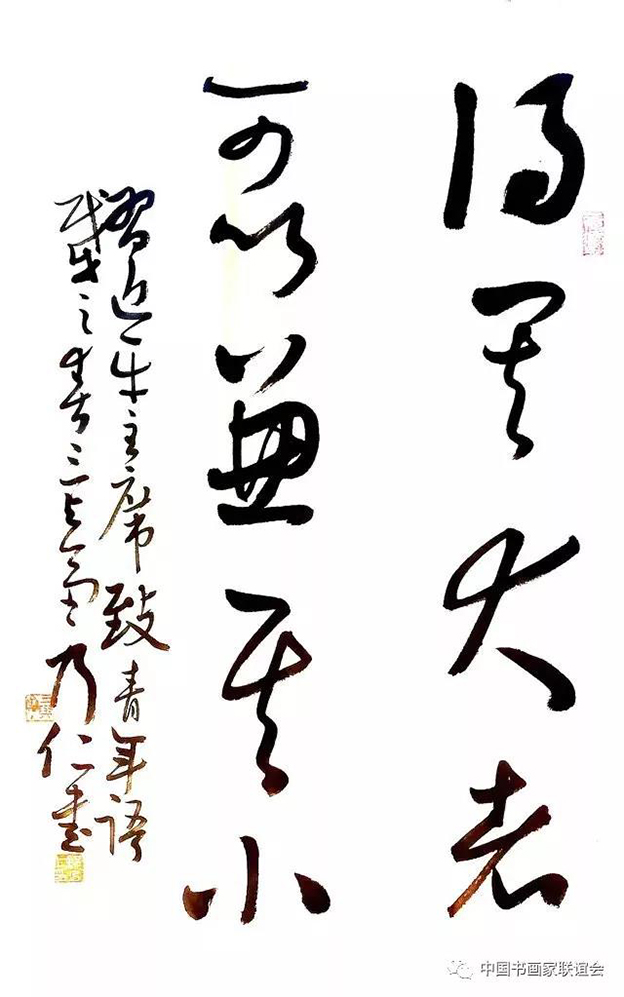 得其大者
可以兼其小
习近平主席致青年语
戊戌之春 乃仁书
中国书画家联谊会